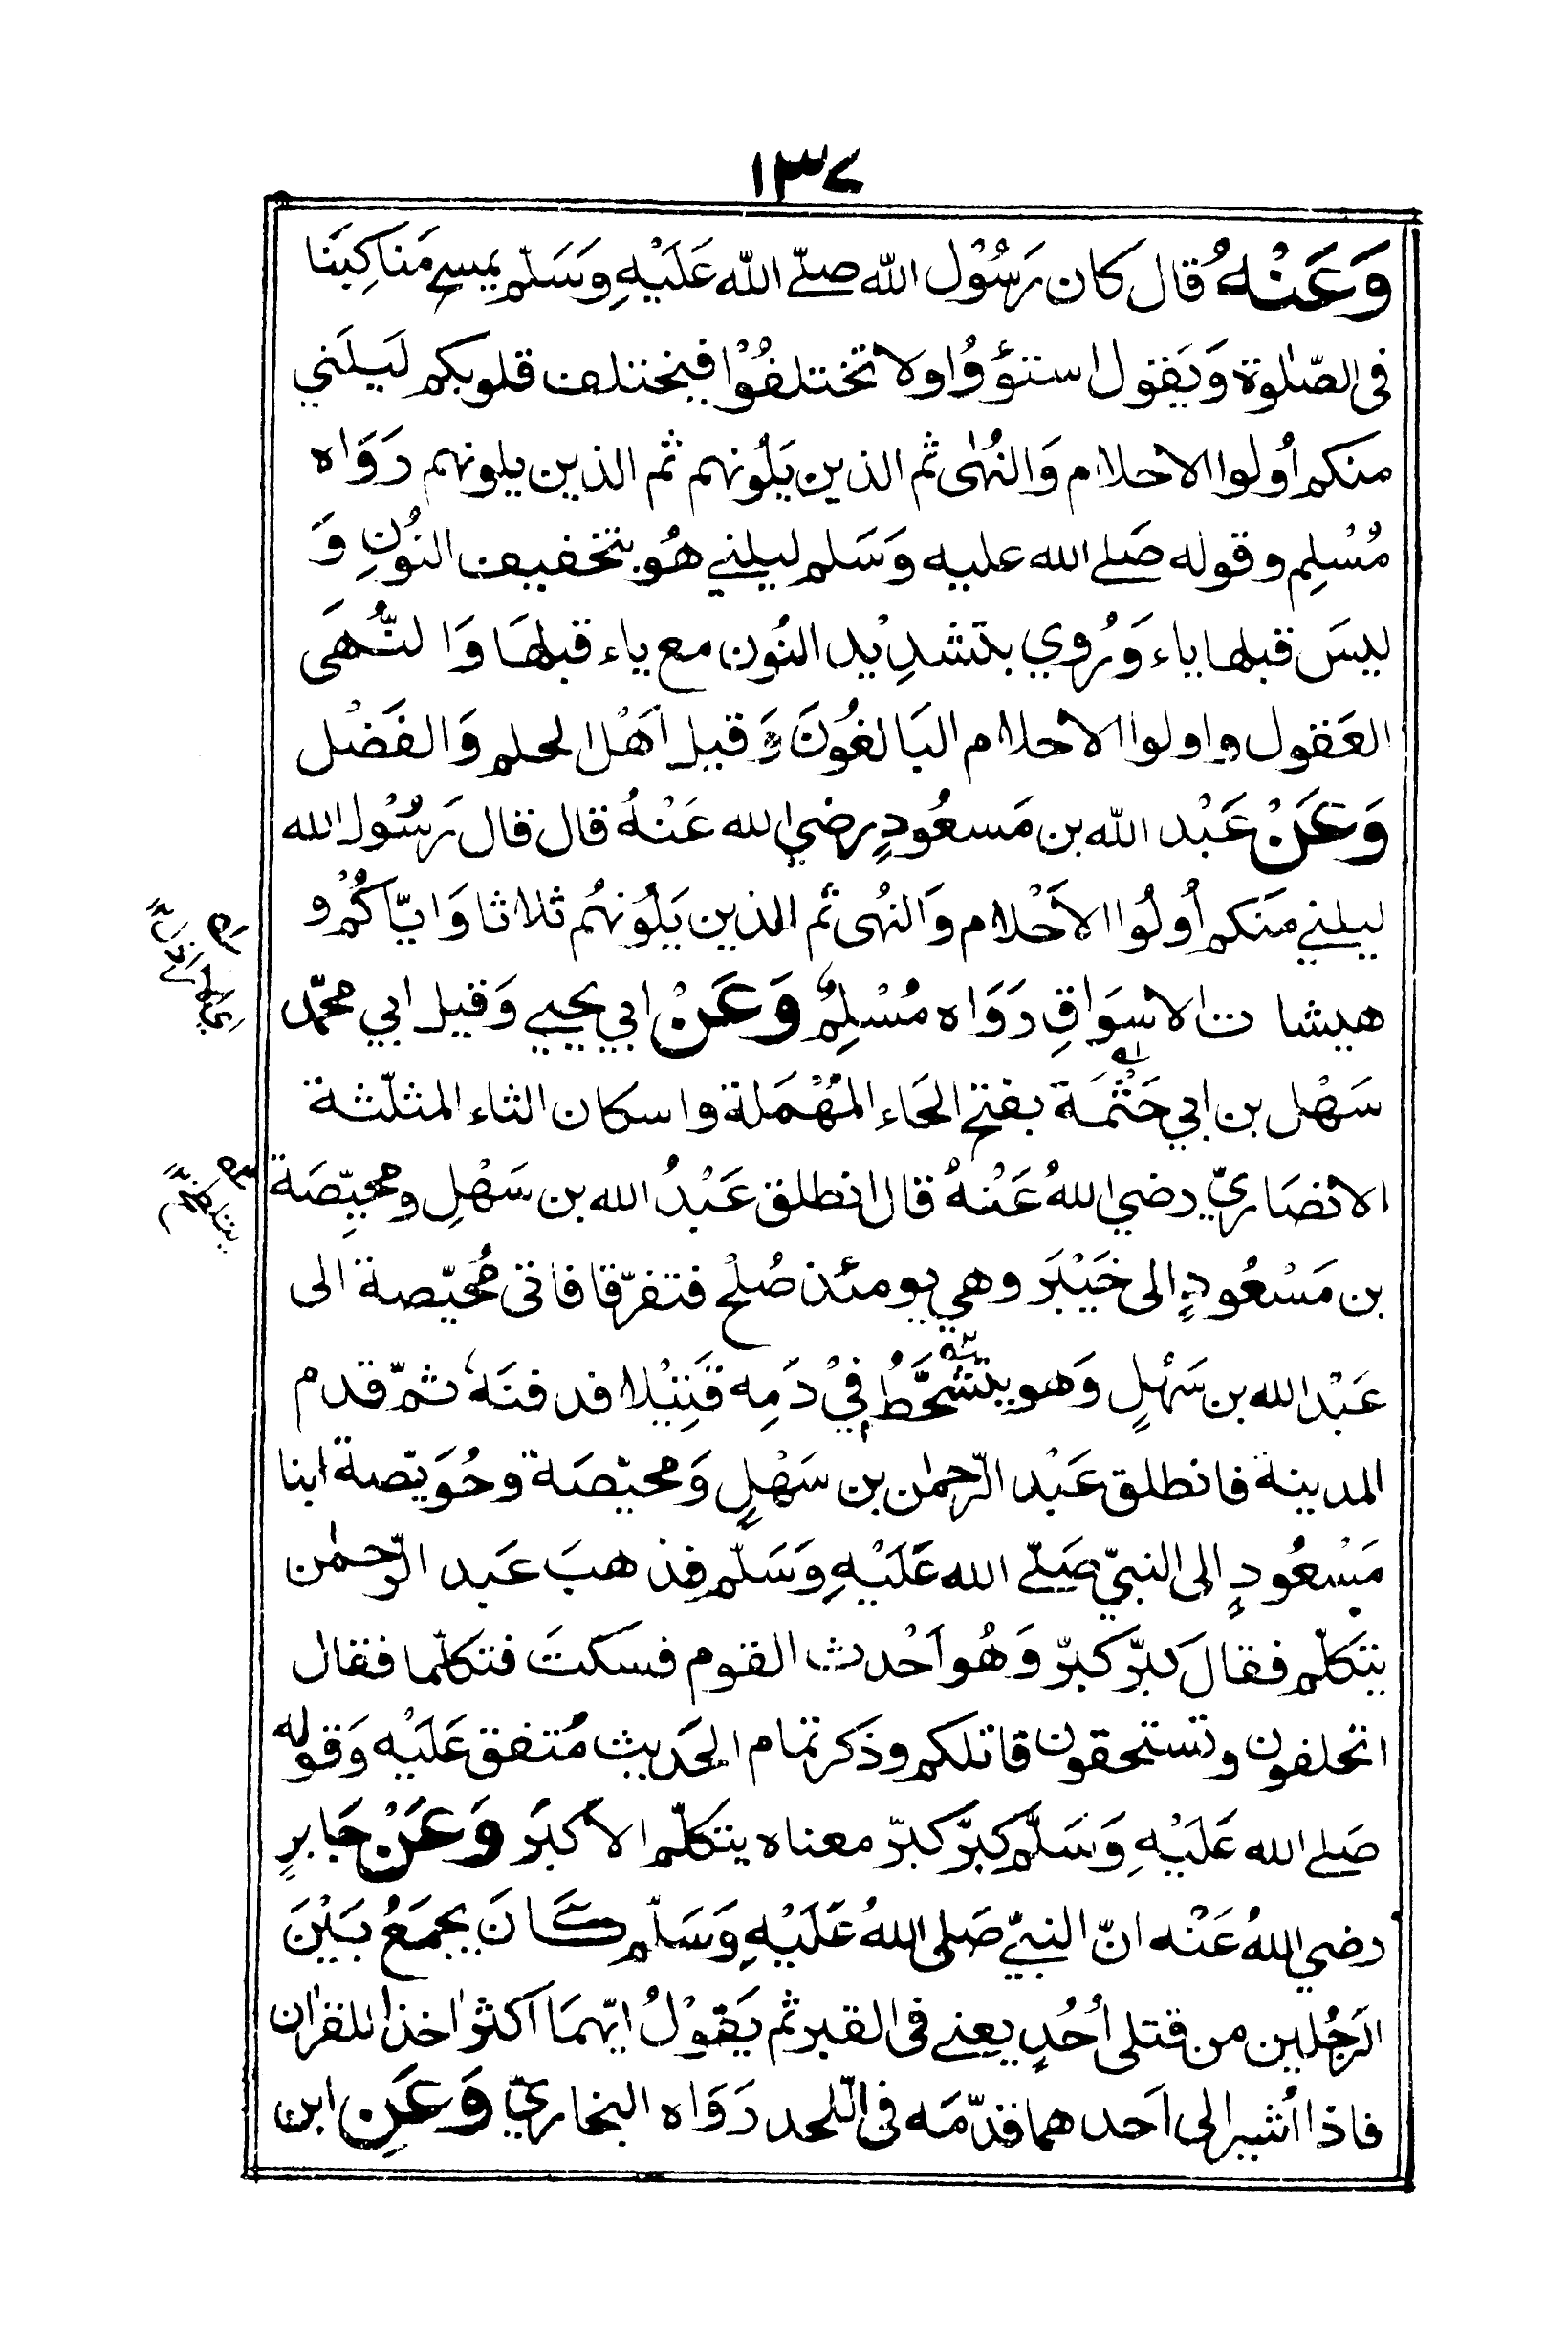 ١٣٧
وَعَنْهُ قال كان رَسُوْل الله صلّے الله عَلَيْهِ وَسَلّم يمسح مَنَاكِبَنَا
فى الصّلٰوة وَيَقول استوُوْا ولا تختلفُوْا فيختلف قلوبكم لَيلَني
منكم أولوا الاحلام وَالنُهٰى ثم الذين يَلُونهم ثم الذين يلونهم رَوَاه
مُسْلِم وقوله صَلے الله عليه وَسَلم ليلني هُو بتخفيف النُونِ وَ
ليسَ قبلها ياء وَرُوي بتشدِيْد النُون مع ياء قبلهَا وَالنُّهَى
العَقول واولوا الاحلام البَالغُونَ وَقيل اَهْل الحلم وَالفَضْل
وَعَنْ عَبْد الله بن مَسعُودٍ رضي الله عَنْهُ قال قال رَسُوْل الله
ليلني مَنكم أُولُوا الاَحْلام وَالنهُى ثم الذين يَلُونهُم ثلاثا وَايّاكُمْ و
هيشات الاسوَاقِ رَوَاه مُسْلِمٌ وَعَنْ ابي يحيى وَقيل ابي محمّد
سَهْل بن ابي حَثْمَة بفتح الحَاء المُهْمَلة واسكان الثاء المثلّثة
الانصَاريّ رضي اللهُ عَنْهُ قال انطلق عَبْدُ الله بن سَهْلٍ ومحيّصَة
بن مَسْعُودٍ الى خَيْبَر وهي يومئذ صُلْح فتفرّقا فاتى مُحَيّصة الى
عَبْد الله بن سَهْلٍ وَهو يتشَحَّطُ فِيْ دَمِه قَتِيْلا فدفنَهٗ ثمّ قدم
المدينة فانطلق عَبْد الرّحمٰن بن سَهْلٍ وَمحيّصَة وحُوَيّصة ابنا
مَسْعُودٍ الى النبيّ صَلّے الله عَلَيْهِ وَسَلّم فذهبَ عَبد الرّحمٰن
يتكلّم فقالَ كبّر كبرّ وَهُو اَحْدث القوم فسكتَ فتكلّما فقال
اتحلفون وتستحقون قاتلكم وذكر تمام الحَديث مُتفق عَلَيْه وَقوله
صَلے الله عَلَيْهِ وَسَلَّم كبّر كبرّ معناه يتكلّم الاَكبَر وَعَنْ جَابرٍ
رضي اللهُ عَنْه انّ النبيّ صَلى اللهُ عَلَيْهِ وَسَلّم كَانَ يجمَعُ بَيْنَ
الرَجُلين من قتلى اُحُدٍ يعنے فى القبر ثم يَقوْلُ ايّهمَا اَكثر اخذا للقراٰن
فاذا اُشير الى اَحدهما قدّمَه فى اللّحد رَوَاه البخاريّ وَعَنِ ابن